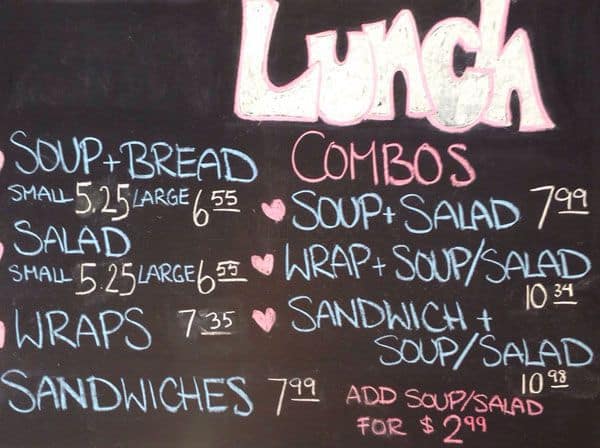 Lunch
SOUP+BREAD
SMALL 5.25 LARGE 6.55
SALAD
SMALL 5.25 LARGE 6.55
WRAPS 7.35
SANDWICHES 7.99
COMBOS
SOUP+SALAD 7.99
WRAP+SOUP/SALAD
10.34
SANDWICH+
SOUP/SALAD
10.98
ADD SOUP/SALAD
FOR $2.99